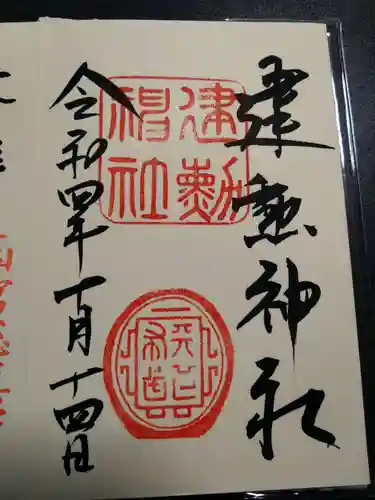 建勲神社
建勲
神社
令和四年十月十四日